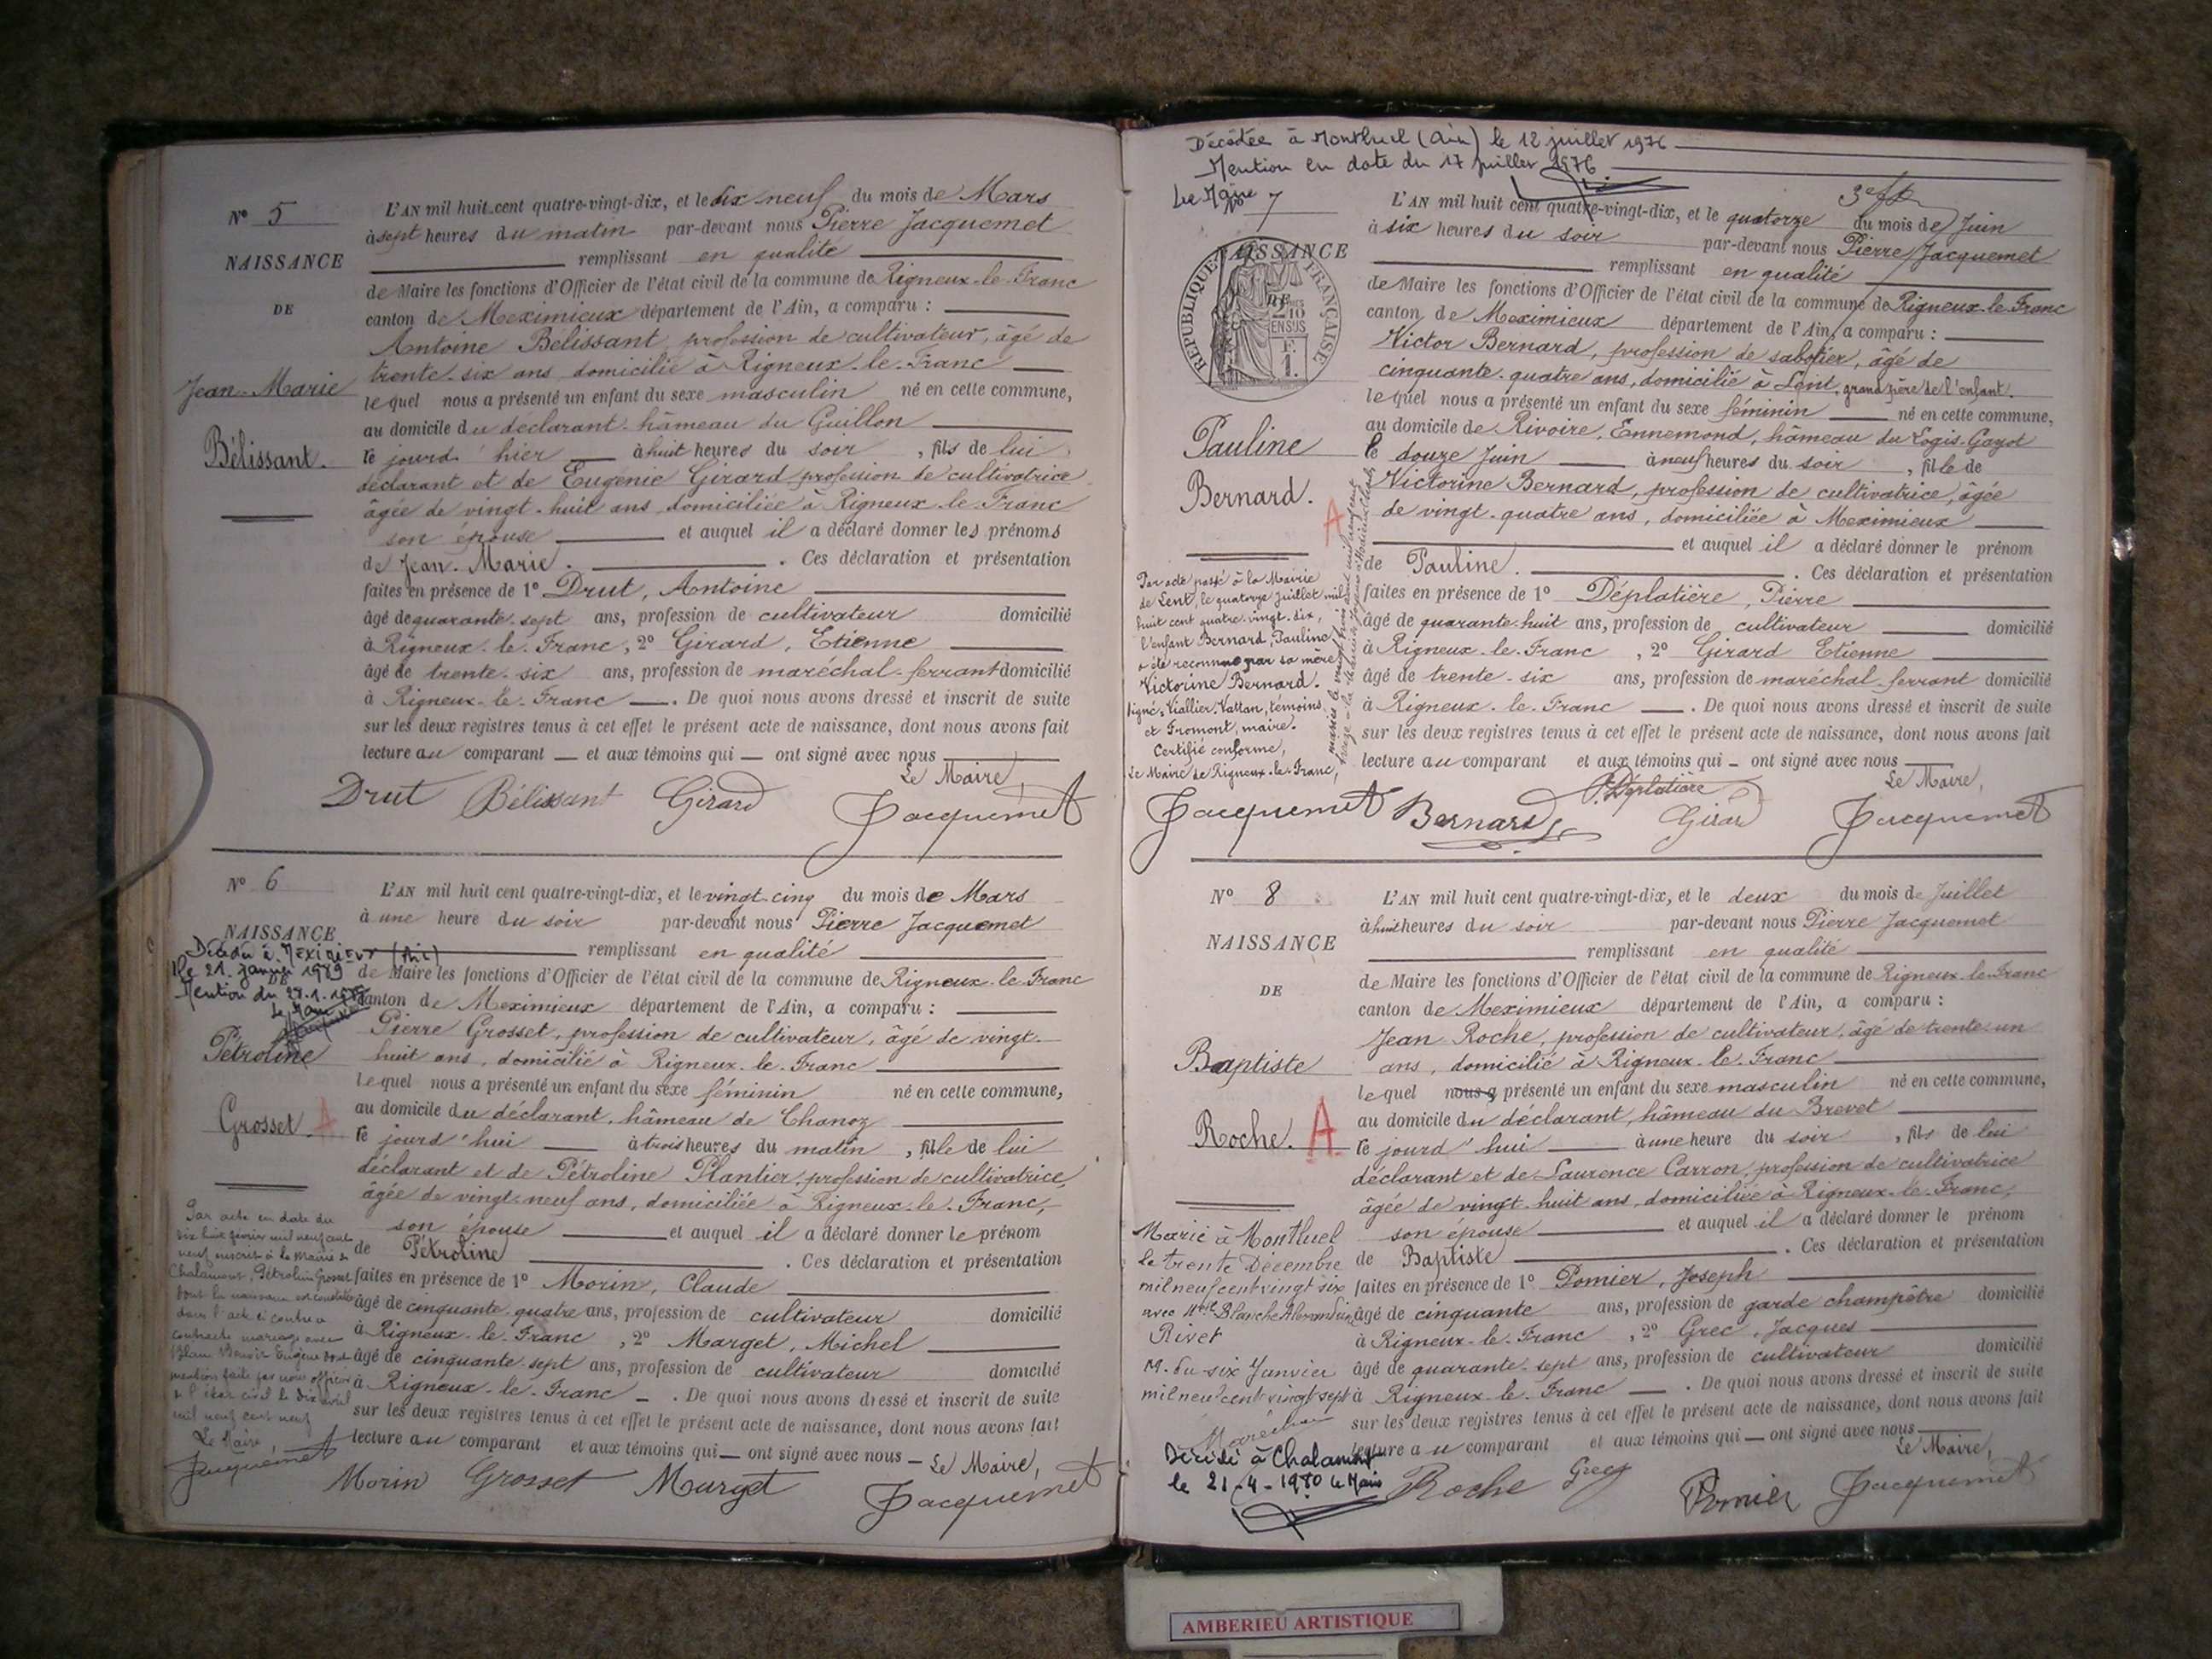 N° 5
NAISSANCE
DE
Jean-Marie
Bélissant.
L'AN mil huit cent quatre-vingt-dix, et le dix neuf du mois de Mars
à sept heures du matin par-devant nous Pierre Jacquemet
remplissant en qualité
de Maire les fonctions d'Officier de l'état civil de la commune de Rigneux-le-Franc
canton de Meximieux département de l'Ain, a comparu :
Antoine Bélissant, profession de cultivateur, âgé de
trente-six ans domicilié à Rigneux-le-Franc
lequel nous a présenté un enfant du sexe masculin né en cette commune,
au domicile du déclarant hâmeau du Guillon
le jourd'hier à huit heures du soir, fils de lui
déclarant et de Eugénie Girard profession de cultivatrice
âgée de vingt-huit ans domiciliée à Rigneux-le-Franc
son épouse et auquel il a déclaré donner les prénoms
de Jean-Marie. Ces déclaration et présentation
faites en présence de 1° Drut, Antoine
âgé de quarante-sept ans, profession de cultivateur domicilié
à Rigneux-le-Franc, 2° Girard, Etienne
âgé de trente-six ans, profession de maréchal-ferrant domicilié
à Rigneux-le-Franc. De quoi nous avons dressé et inscrit de suite
sur les deux registres tenus à cet effet le présent acte de naissance, dont nous avons fait
lecture au comparant et aux témoins qui ont signé avec nous
Le Maire,
Drut Bélissant Girard Jacquemet
N° 6
NAISSANCE
DE
Décédée à MEXIMIEUX (Ain)
le 21 janvier 1989
Mention du 27.1.1989
Le Maire
Pétroline
Grosset. A
L'AN mil huit cent quatre-vingt-dix, et le vingt-cinq du mois de Mars
à une heure du soir par-devant nous Pierre Jacquemet
remplissant en qualité
de Maire les fonctions d'Officier de l'état civil de la commune de Rigneux-le-Franc
canton de Meximieux département de l'Ain, a comparu :
Pierre Grosset, profession de cultivateur, âgé de vingt-
huit ans, domicilié à Rigneux-le-Franc
lequel nous a présenté un enfant du sexe féminin né en cette commune,
au domicile du déclarant, hâmeau de Chanoz
le jourd'hui à trois heures du matin, fille de lui
déclarant et de Pétroline Plantier, profession de cultivatrice,
âgée de vingt-neuf ans, domiciliée à Rigneux-le-Franc,
son épouse et auquel il a déclaré donner le prénom
de Pétroline. Ces déclaration et présentation
faites en présence de 1° Morin, Claude
âgé de cinquante-quatre ans, profession de cultivateur domicilié
à Rigneux-le-Franc, 2° Marget, Michel
âgé de cinquante-sept ans, profession de cultivateur domicilié
à Rigneux-le-Franc. De quoi nous avons dressé et inscrit de suite
sur les deux registres tenus à cet effet le présent acte de naissance, dont nous avons fait
lecture au comparant et aux témoins qui ont signé avec nous
Le Maire,
Morin Grosset Marget Jacquemet
Par acte en date du
dix huit février mil neuf cent
neuf inscrit à la Mairie de
Chalamont, Pétroline Grosset
dont la naissance est constatée
dans l'acte ci contre a
contracté mariage avec
Blanc Benoit Eugène dont
mention faite par nous officier
de l'état civil le dix avril
mil neuf cent neuf
Le Maire,
Jacquemet
Décédée à Montluel (Ain) le 12 juillet 1976
Mention en date du 17 juillet 1976
Le Maire
N° 7
NAISSANCE
DE
REPUBLIQUE FRANÇAISE
2/10 EN SUS
F. 1.
Pauline
Bernard.
A
L'AN mil huit cent quatre-vingt-dix, et le quatorze du mois de Juin
à six heures du soir par-devant nous Pierre Jacquemet
remplissant en qualité
de Maire les fonctions d'Officier de l'état civil de la commune de Rigneux-le-Franc
canton de Meximieux département de l'Ain, a comparu :
Victor Bernard, profession de sabotier, âgé de
cinquante-quatre ans, domicilié à Lent, grand père de l'enfant.
lequel nous a présenté un enfant du sexe féminin né en cette commune,
au domicile de Rivoire, Ennemond, hâmeau du Logis-Gayot
le douze Juin à neuf heures du soir, fille de
Victorine Bernard, profession de cultivatrice, âgée
de vingt-quatre ans, domiciliée à Meximieux
et auquel il a déclaré donner le prénom
de Pauline. Ces déclaration et présentation
faites en présence de 1° Déplatière, Pierre
âgé de quarante-huit ans, profession de cultivateur domicilié
à Rigneux-le-Franc, 2° Girard Etienne
âgé de trente-six ans, profession de maréchal-ferrant domicilié
à Rigneux-le-Franc. De quoi nous avons dressé et inscrit de suite
sur les deux registres tenus à cet effet le présent acte de naissance, dont nous avons fait
lecture au comparant et aux témoins qui ont signé avec nous
Le Maire,
P. Déplatière
Bernard Girard Jacquemet
Par acte passé à la Mairie
de Lent, le quatorze Juillet mil
huit cent quatre-vingt-dix,
l'enfant Bernard, Pauline
a été reconnue par sa mère
Victorine Bernard.
signé: Viallier, Vattan, témoins
et Fromont, maire.
Certifié conforme,
Le Maire de Rigneux-le-Franc,
Jacquemet
N° 8
NAISSANCE
DE
Baptiste
Roche. A
L'AN mil huit cent quatre-vingt-dix, et le deux du mois de Juillet
à huit heures du soir par-devant nous Pierre Jacquemet
remplissant en qualité
de Maire les fonctions d'Officier de l'état civil de la commune de Rigneux-le-Franc
canton de Meximieux département de l'Ain, a comparu :
Jean Roche, profession de cultivateur, âgé de trente-un
ans, domicilié à Rigneux-le-Franc
lequel nous a présenté un enfant du sexe masculin né en cette commune,
au domicile du déclarant, hâmeau du Brevet
le jourd'hui à une heure du soir, fils de lui
déclarant et de Laurence Carron, profession de cultivatrice
âgée de vingt-huit ans, domiciliée à Rigneux-le-Franc,
son épouse et auquel il a déclaré donner le prénom
de Baptiste. Ces déclaration et présentation
faites en présence de 1° Pomier, Joseph
âgé de cinquante ans, profession de garde champêtre domicilié
à Rigneux-le-Franc, 2° Grec, Jacques
âgé de quarante-sept ans, profession de cultivateur domicilié
à Rigneux-le-Franc. De quoi nous avons dressé et inscrit de suite
sur les deux registres tenus à cet effet le présent acte de naissance, dont nous avons fait
lecture au comparant et aux témoins qui ont signé avec nous
Le Maire,
Roche Grec Pomier Jacquemet
Marié à Montluel
le trente Décembre
mil neuf cent vingt six
avec Melle Blanche Alexandrine
Rivet
M. du six Janvier
mil neuf cent vingt sept
Décédé à Chalamont
le 21-4-1980 le Maire
AMBERIEU ARTISTIQUE